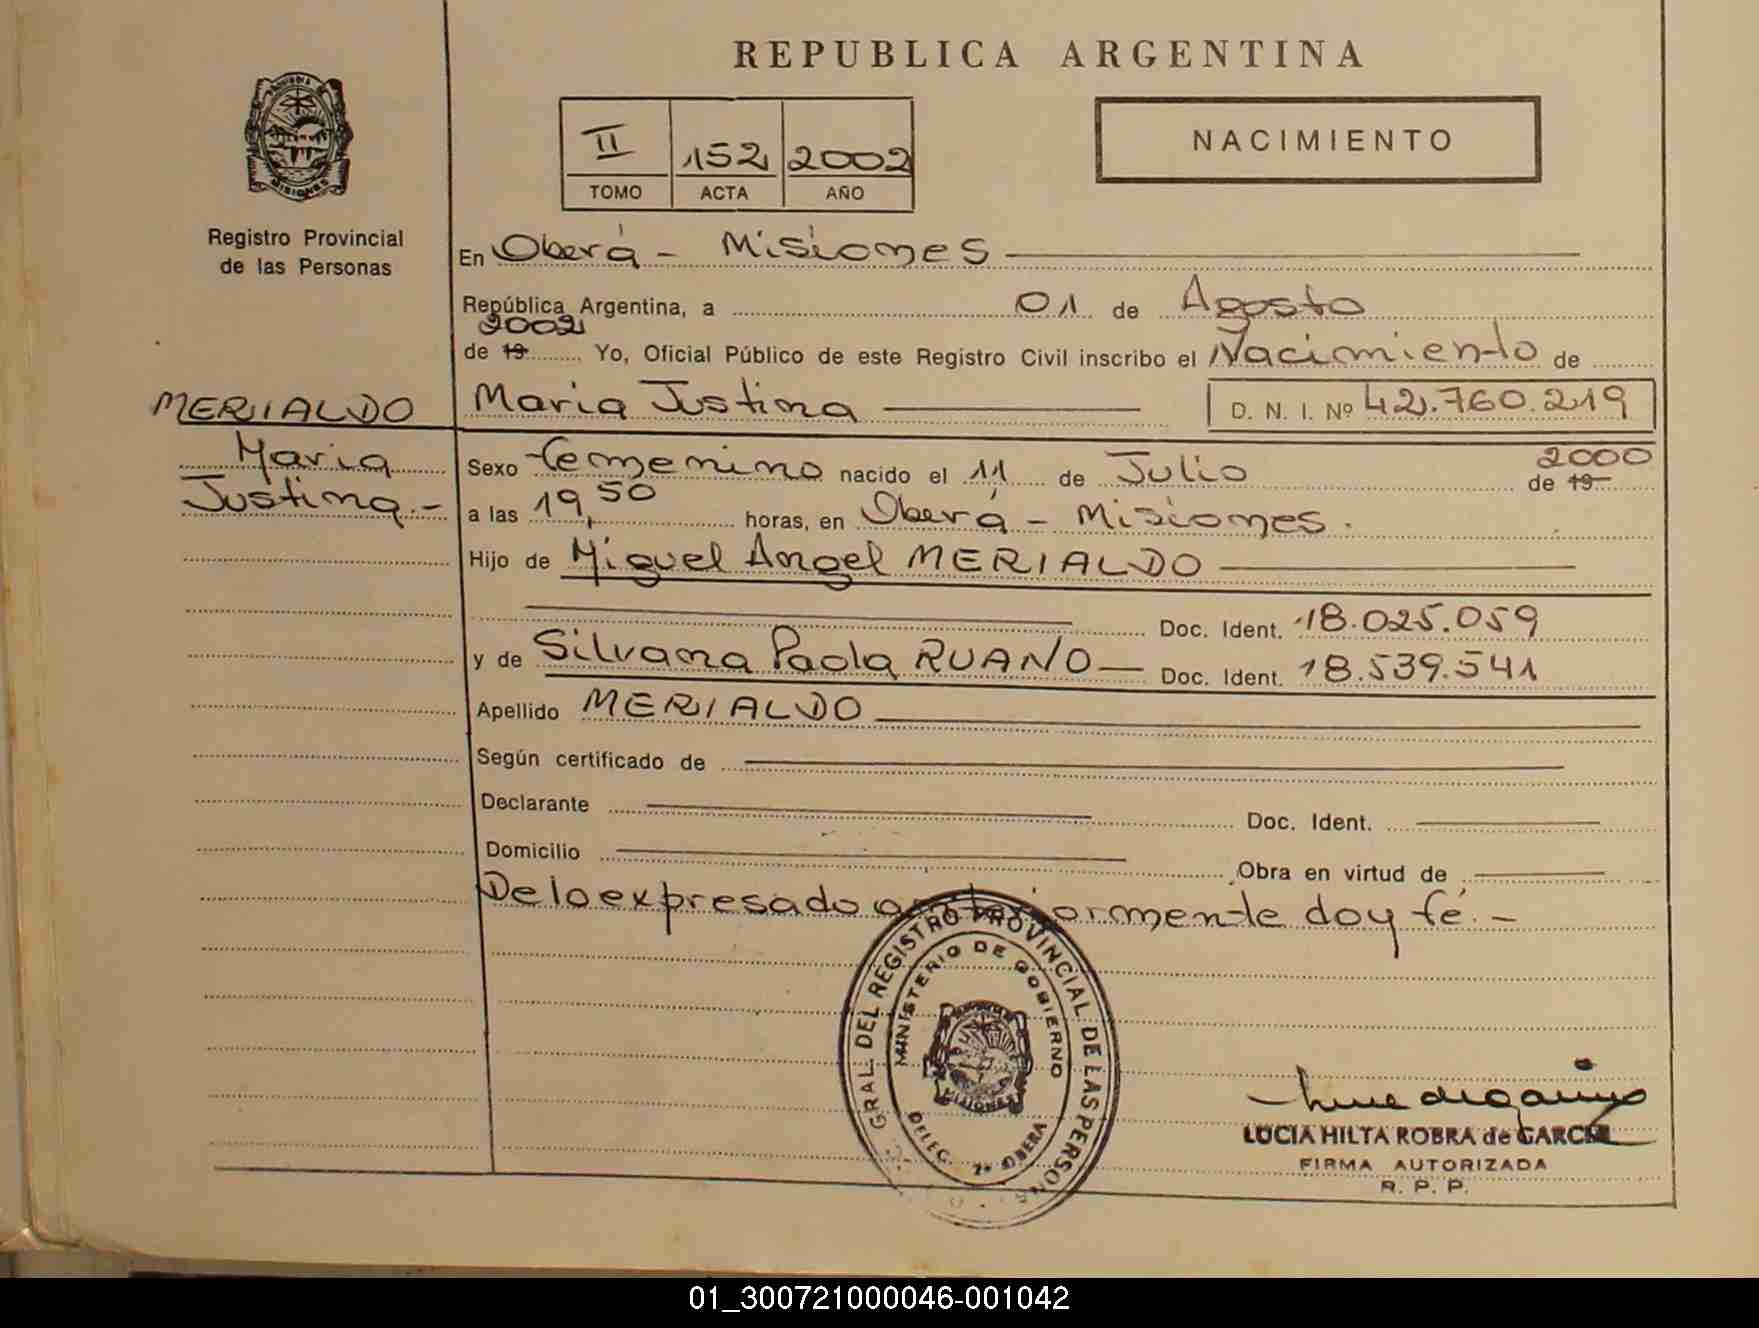 REPUBLICA ARGENTINA
II 152 2002
TOMO ACTA AÑO
NACIMIENTO
MISIONES
Registro Provincial
de las Personas
En Oberá - Misiones
República Argentina, a 01 de Agosto
2002
de 19 Yo, Oficial Público de este Registro Civil inscribo el Nacimiento de
MERIALDO
Maria Justina D. N. I. Nº 42.760.219
Maria
Justina.-
Sexo femenino nacido el 11 de Julio de 19 2000
a las 19,50 horas, en Oberá - Misiones.
Hijo de Miguel Angel MERIALDO
Doc. Ident. 18.025.059
y de Silvana Paola RUANO Doc. Ident. 18.539.541
Apellido MERIALDO
Según certificado de
Declarante Doc. Ident.
Domicilio Obra en virtud de
De lo expresado anteriormente doy fé.-
GRAL. DEL REGISTRO PROVINCIAL DE LAS PERSONAS
MINISTERIO DE GOBIERNO
MISIONES
DELEG. OBERA
LUCIA HILTA ROBRA de GARCIA
FIRMA AUTORIZADA
R. P. P.
01_300721000046-001042